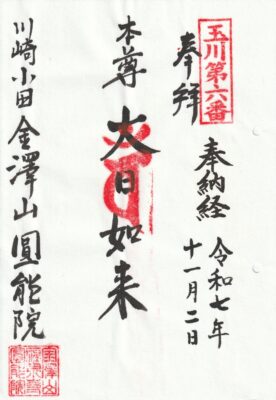 玉川第六番
奉拜
奉納経
令和七年
十一月二日
本尊
大日如来
川崎小田 金澤山 圓能院